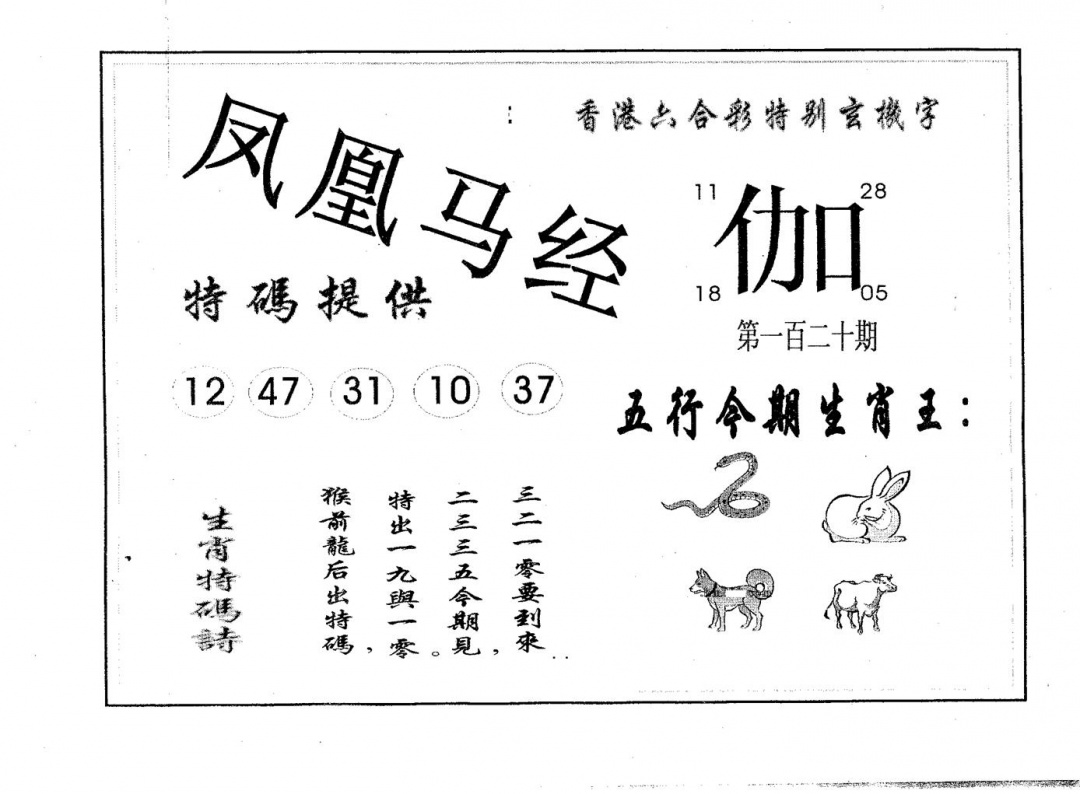 凤凰马经
香港六合彩特别玄機字
11
28
伽
18
05
第一百二十期
特碼提供
12 47 31 10 37
五行今期生肖王：
生肖特碼詩
猴前龍后出特碼，
特出一九與一零。
二三三五今期見，
三二一零要到來